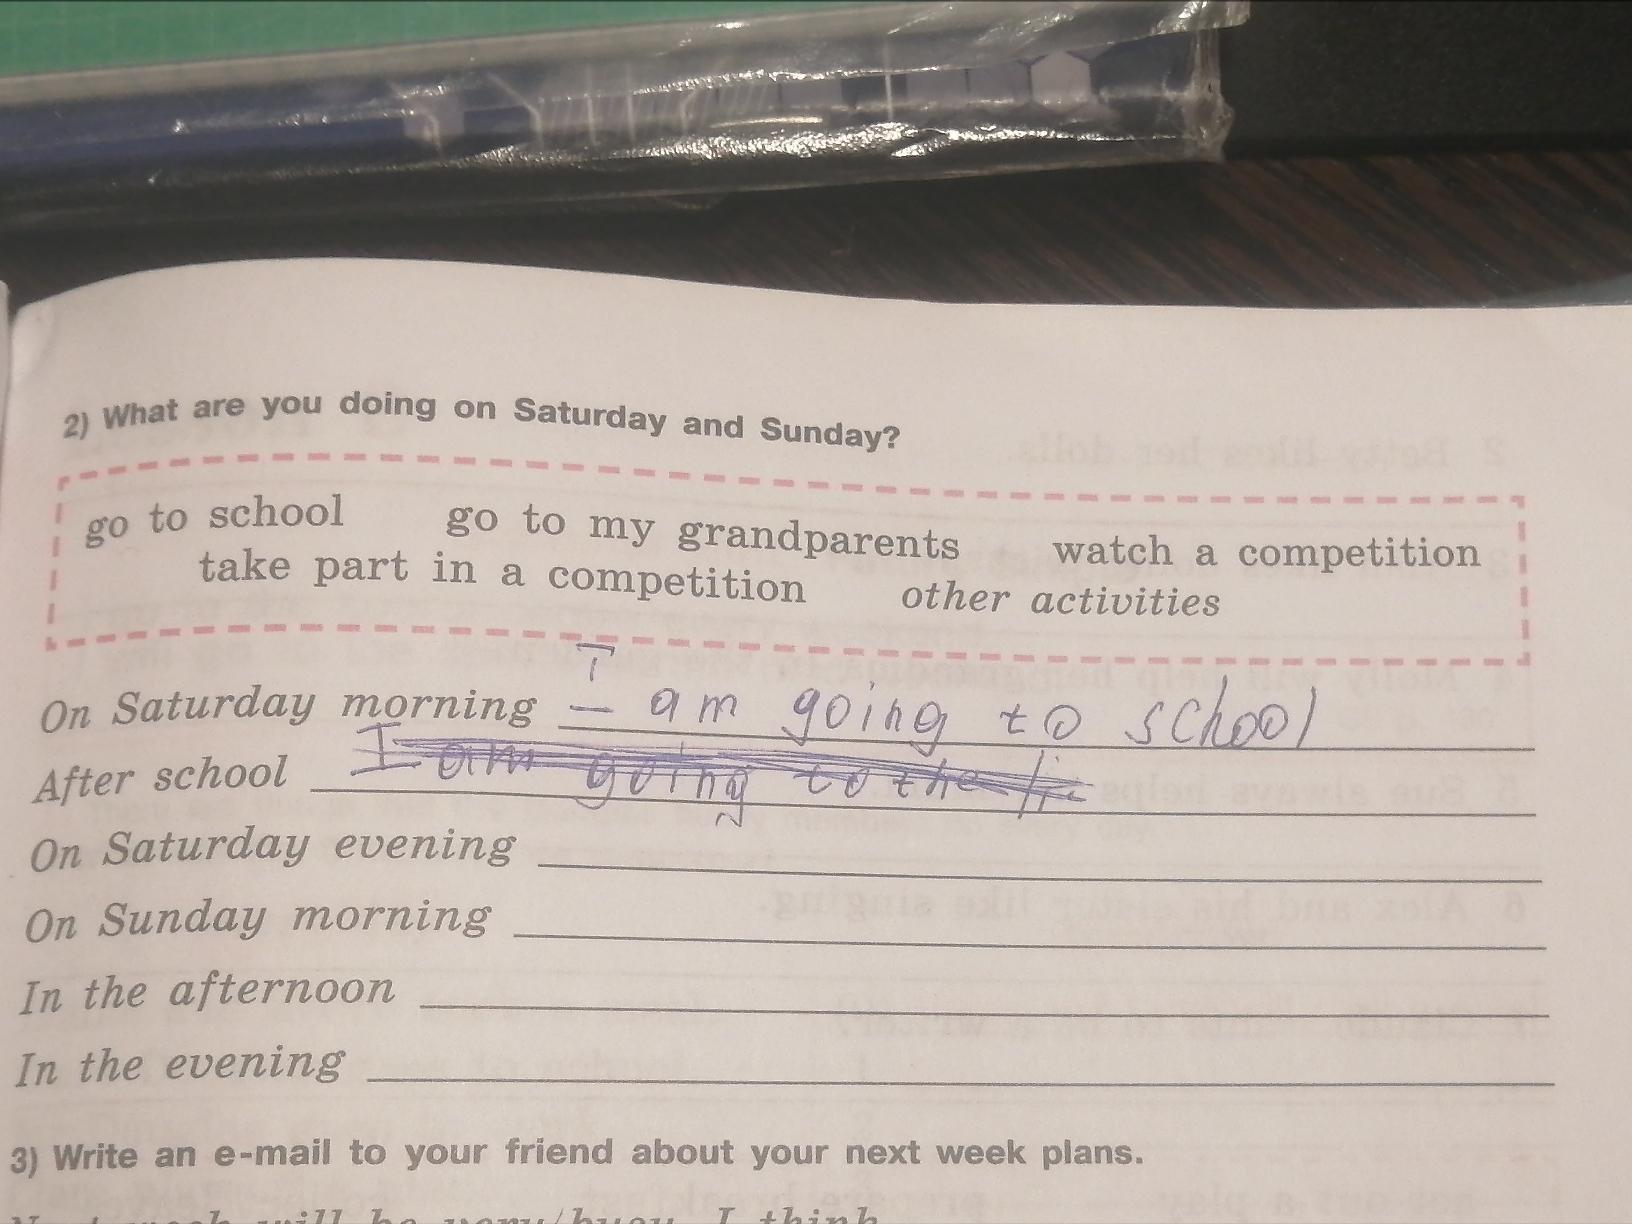 2) What are you doing on Saturday and Sunday?
go to school go to my grandparents watch a competition
take part in a competition other activities
On Saturday morning I am going to school
After school I am going to the li
On Saturday evening
On Sunday morning
In the afternoon
In the evening
3) Write an e-mail to your friend about your next week plans.
week will be very/busy. I think